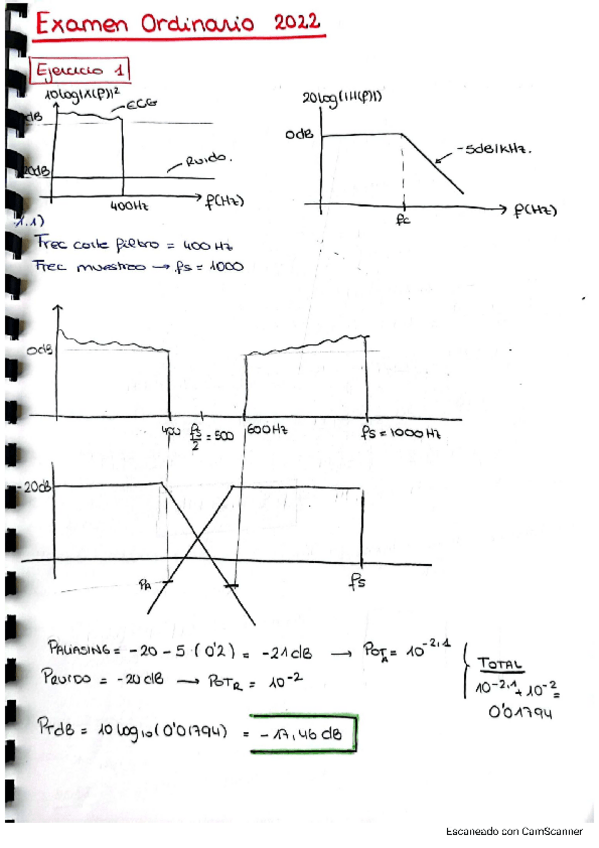 Examen Ordinario 2022
Ejercicio 1
10log|X(f)|²
ECG
dB
Ruido.
20dB
400Hz
f(Hz)
20log(|H(f)|)
0dB
-5dB/kHz.
fc
f(Hz)
1.1)
Frec corte filtro = 400 Hz
Frec muestreo → fs = 1000
0dB
400
fs/2 = 500
600Hz
fs = 1000Hz
-20dB
PA
fs
PALIASING = -20 - 5 · (0'2) = -21 dB → POTA = 10^-2,1
PRUIDO = -20 dB → POTR = 10^-2
TOTAL
10^-2,1 + 10^-2 =
0'01794
PTdB = 10 log10 (0'01794) = -17,46 dB
Escaneado con CamScanner